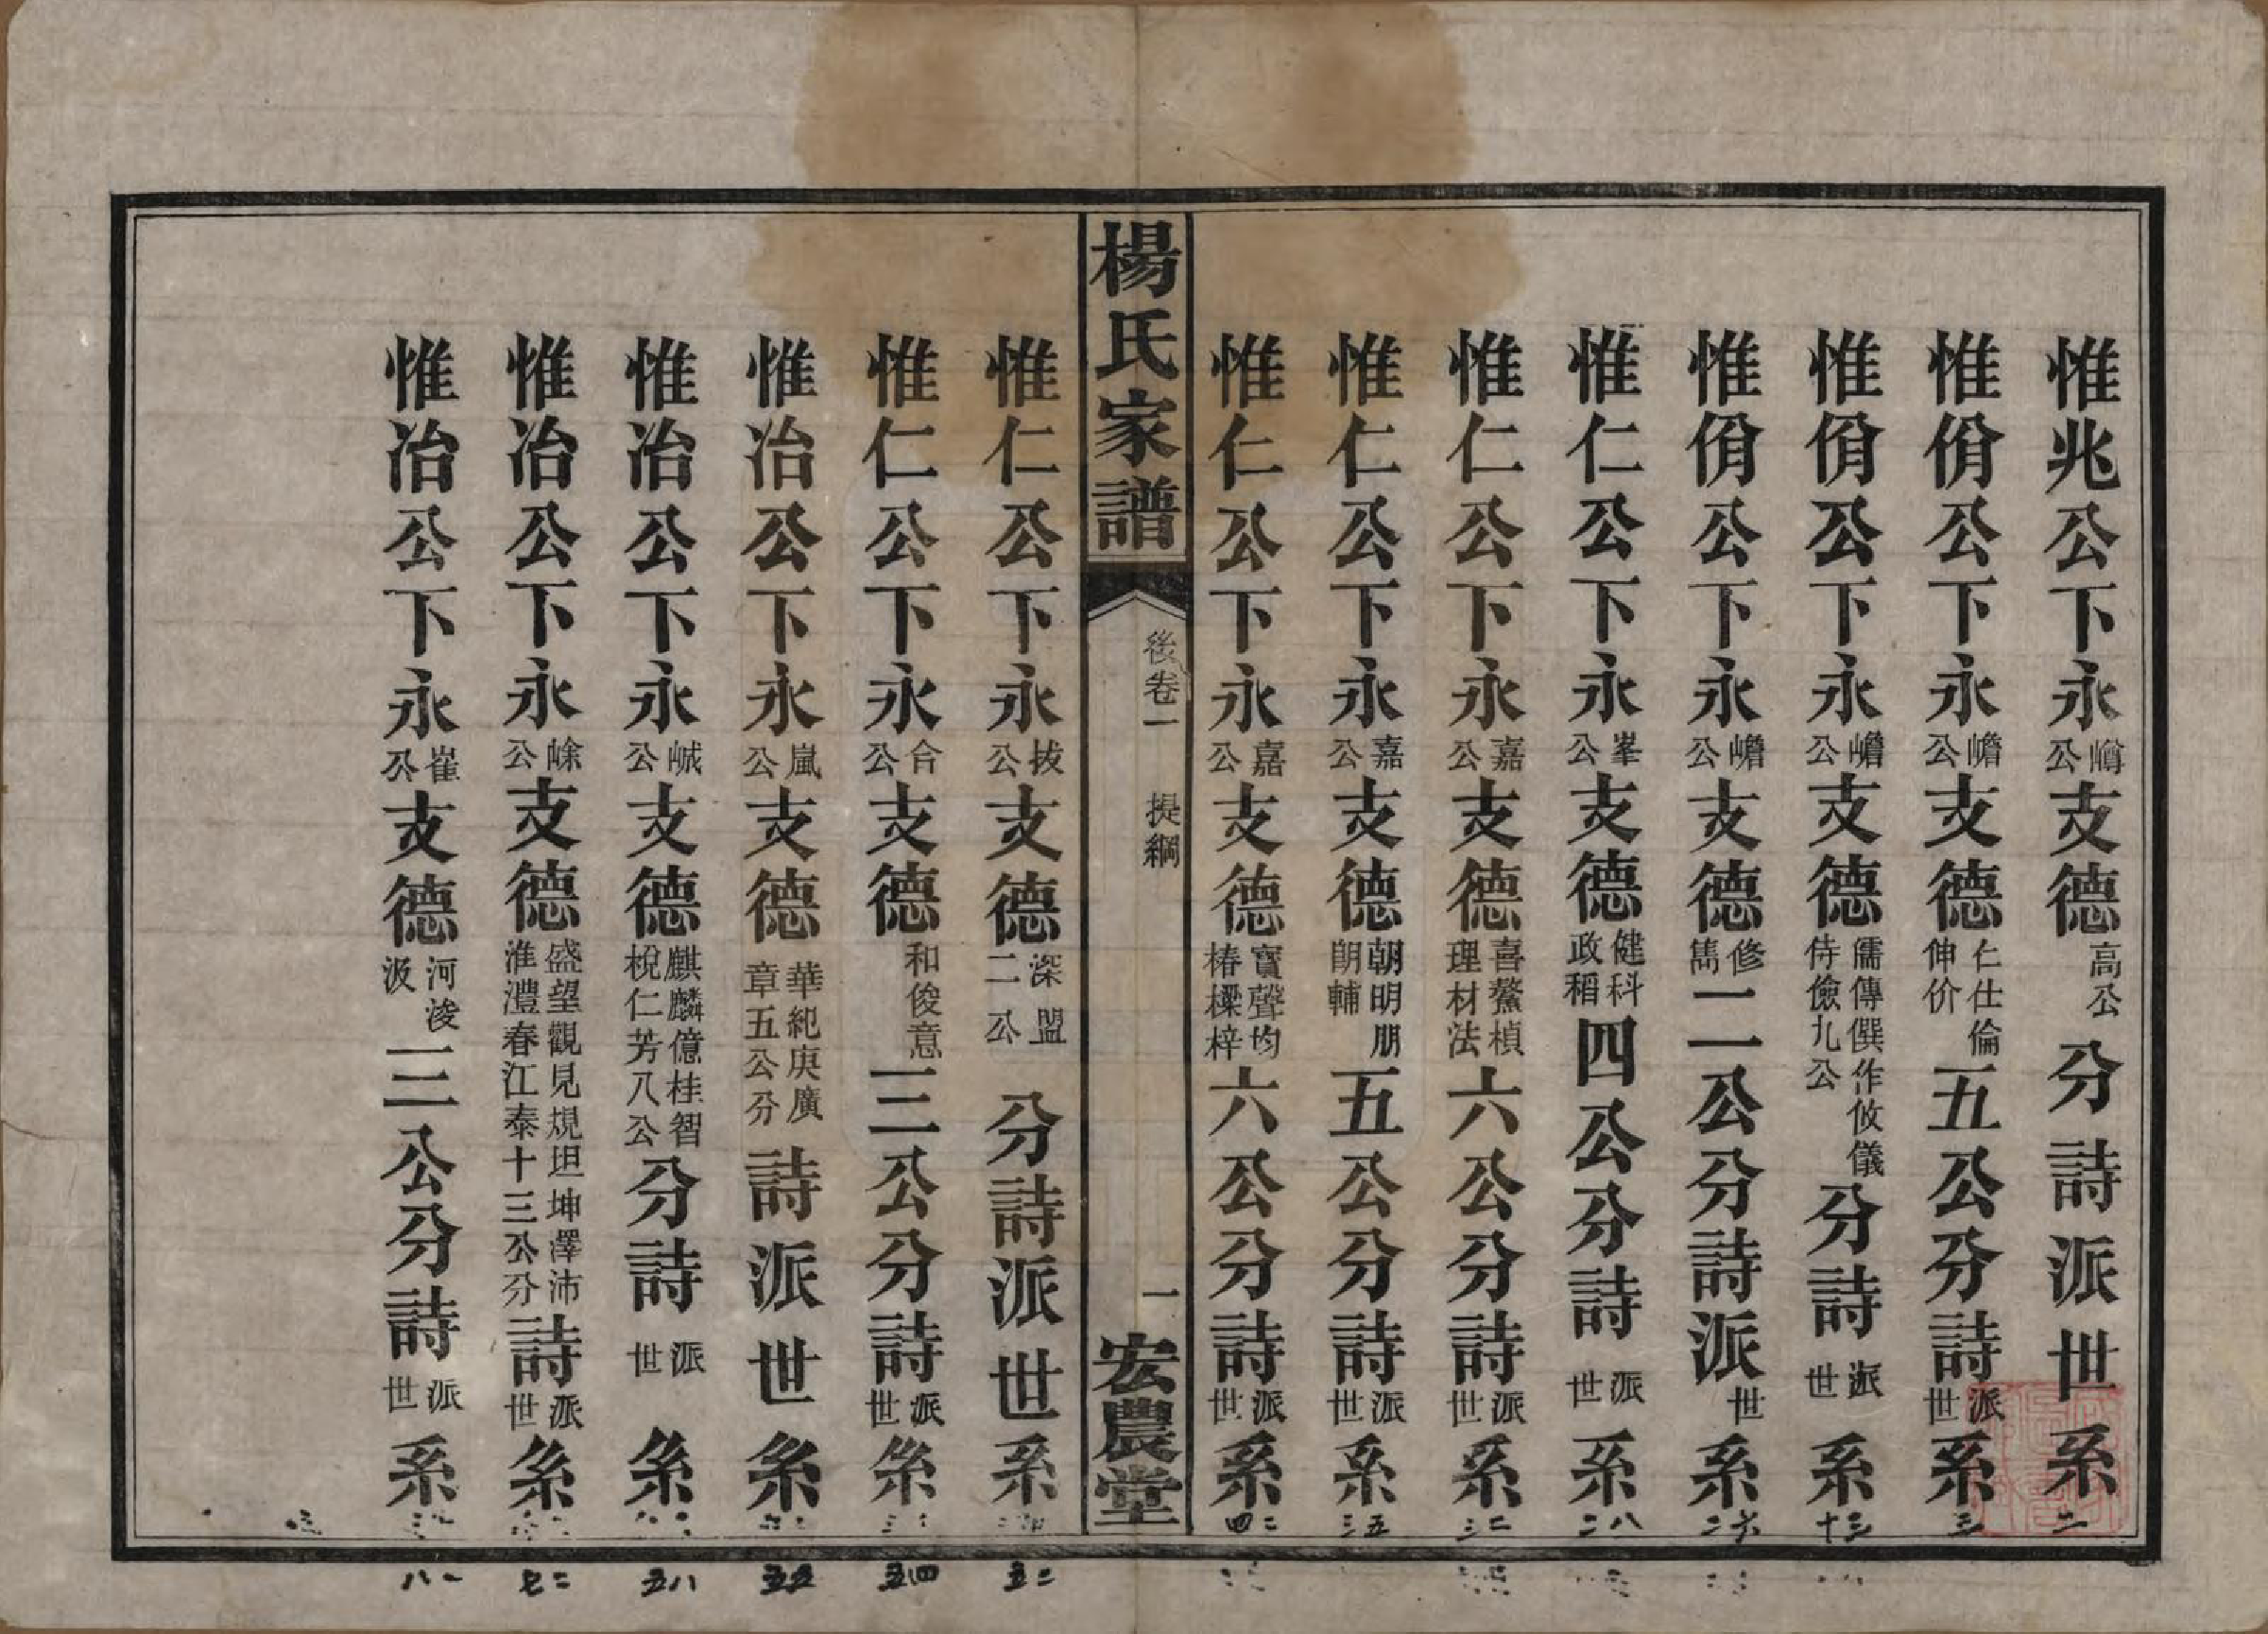 惟兆公下永嶟公支德高公分詩派世系二
惟佾公下永嶦公支德仁仕倫伸价五公分詩派世系三
惟佾公下永嶦公支德儒傳僎作攸儀侍儉九公分詩派世系十三
惟佾公下永嶦公支德修雋二公分詩派世系二六
惟仁公下永峯公支德健科政稻四公分詩派世系二八
惟仁公下永嘉公支德喜鰲楨理材法六公分詩派世系三二
惟仁公下永嘉公支德朝明朋朗輔五公分詩派世系三五
惟仁公下永嘉公支德寶聲均椿樑梓六公分詩派世系四二
楊氏家譜 後卷一 提綱 一 宏農堂
惟仁公下永拔公支德深盟二公分詩派世系五二
惟仁公下永合公支德和俊意三公分詩派世系五四
惟治公下永嵐公支德華紀庚廣章五公分詩派世系五五
惟治公下永峸公支德麒麟億桂智梲仁芳八公分詩派世系五八
惟治公下永峹公支德盛望觀見規坦坤澤沛淮灃春江泰十三公分詩派世系七二
惟治公下永崔公支德河浚汲三公分詩派世系八一